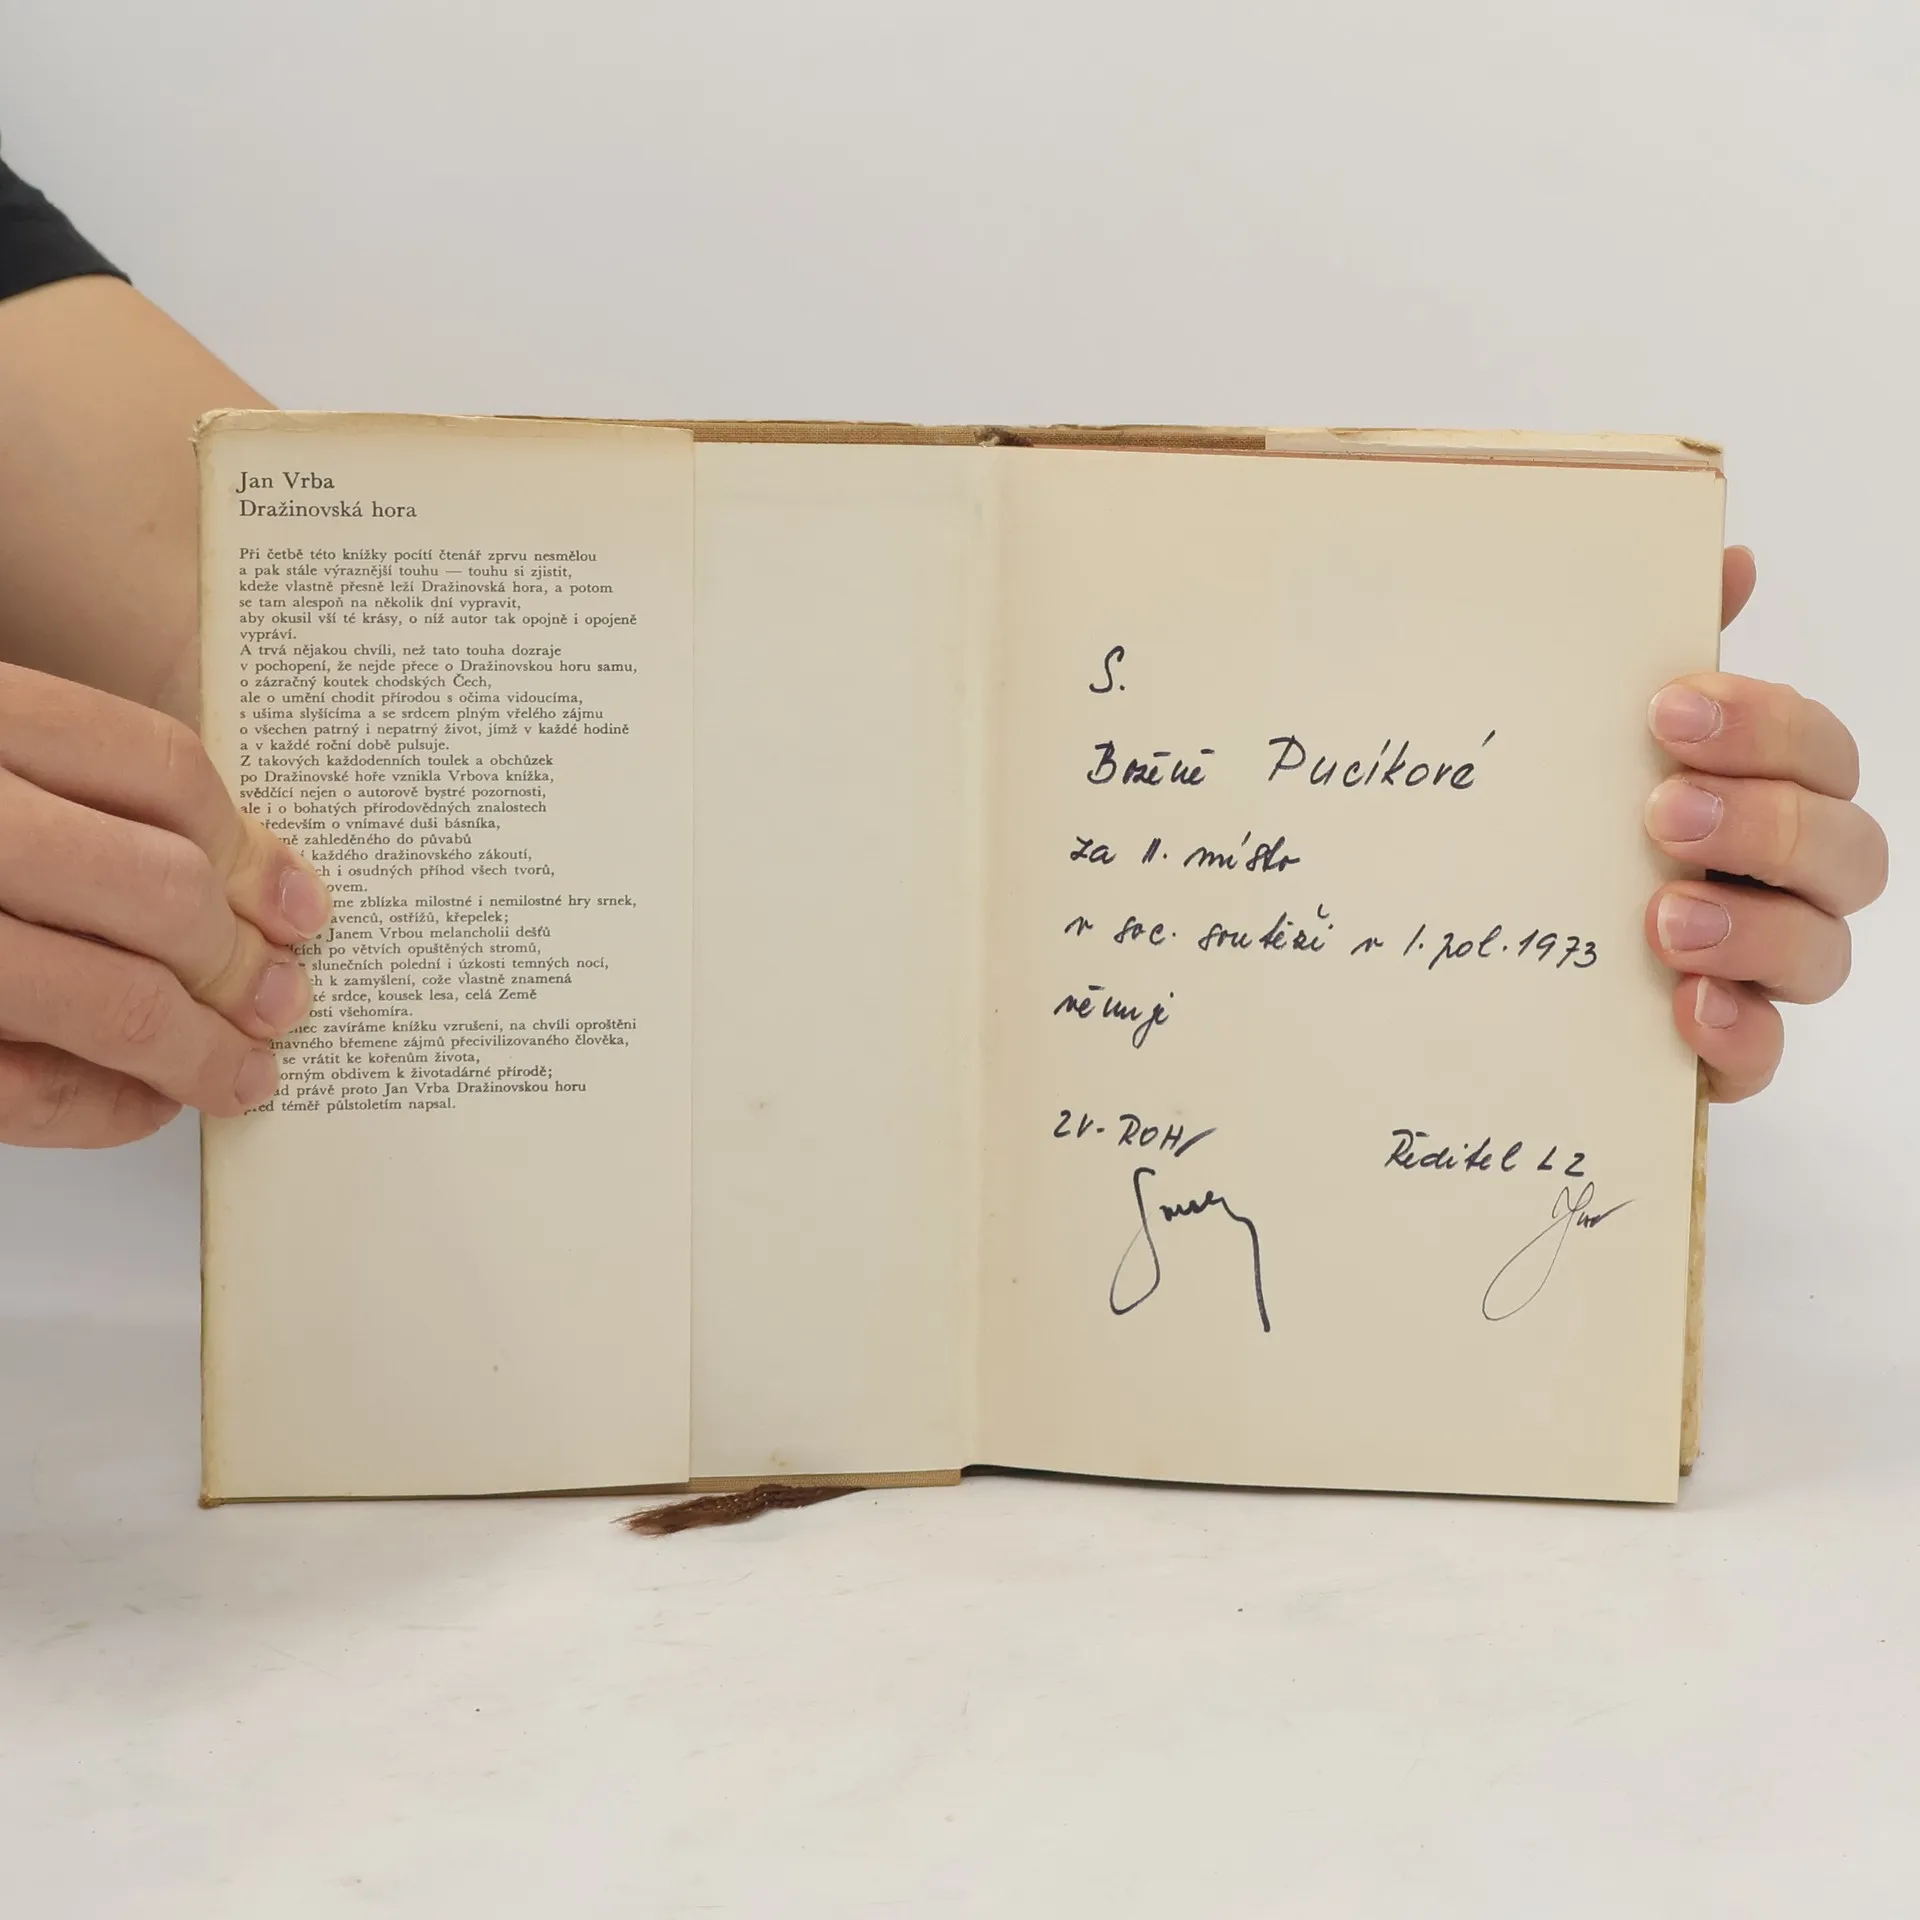 Jan Vrba
Dražinovská hora
Při četbě této knížky pocítí čtenář zprvu nesmělou
a pak stále výraznější touhu — touhu si zjistit,
kdeže vlastně přesně leží Dražinovská hora, a potom
se tam alespoň na několik dní vypravit,
aby okusil vší té krásy, o níž autor tak opojně i opojeně
vypráví.
A trvá nějakou chvíli, než tato touha dozraje
v pochopení, že nejde přece o Dražinovskou horu samu,
o zázračný koutek chodských Čech,
ale o umění chodit přírodou s očima vidoucíma,
s ušima slyšícíma a se srdcem plným vřelého zájmu
o všechen patrný i nepatrný život, jímž v každé hodině
a v každé roční době pulsuje.
Z takových každodenních toulek a obchůzek
po Dražinovské hoře vznikla Vrbova knížka,
svědčící nejen o autorově bystré pozornosti,
ale i o bohatých přírodovědných znalostech
především o vnímavé duši básníka,
zahleděného do půvabů
každého dražinovského zákoutí,
i osudných příhod všech tvorů,
zblízka milostné i nemilostné hry srnek,
ostřížů, křepelek;
Janem Vrbou melancholii dešťů
po větvích opuštěných stromů,
slunečních polední i úzkosti temných nocí,
k zamyšlení, což vlastně znamená
srdce, kousek lesa, celá Země
všehomíra.
zavíráme knížku vzrušeni, na chvíli oproštěni
břemene zájmů přecivilizovaného člověka,
se vrátit ke kořenům života,
obdivem k životadárné přírodě;
právě proto Jan Vrba Dražinovskou horu
před téměř půlstoletím napsal.
S.
Boženě Pucíkové
za II. místo
v soc. soutěži v 1. pol. 1973
věnuje
ZV-ROH
Ředitel LZ